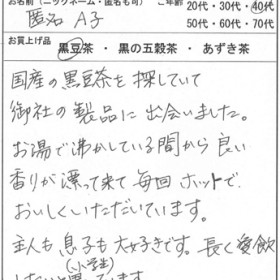 お名前(ニックネーム・匿名も可) ご年齢
匿名 A子
20代・30代・40代
50代・60代・70代
お買上げ品 黒豆茶 ・ 黒の五穀茶 ・ あずき茶
国産の黒豆茶を探していて
御社の製品に出会いました。
お湯で沸かしている間から良い
香りが漂って来て毎回ホットで、
おいしくいただいています。
主人も息子も大好きです。長く愛飲
(小学生)
したいと思っています。